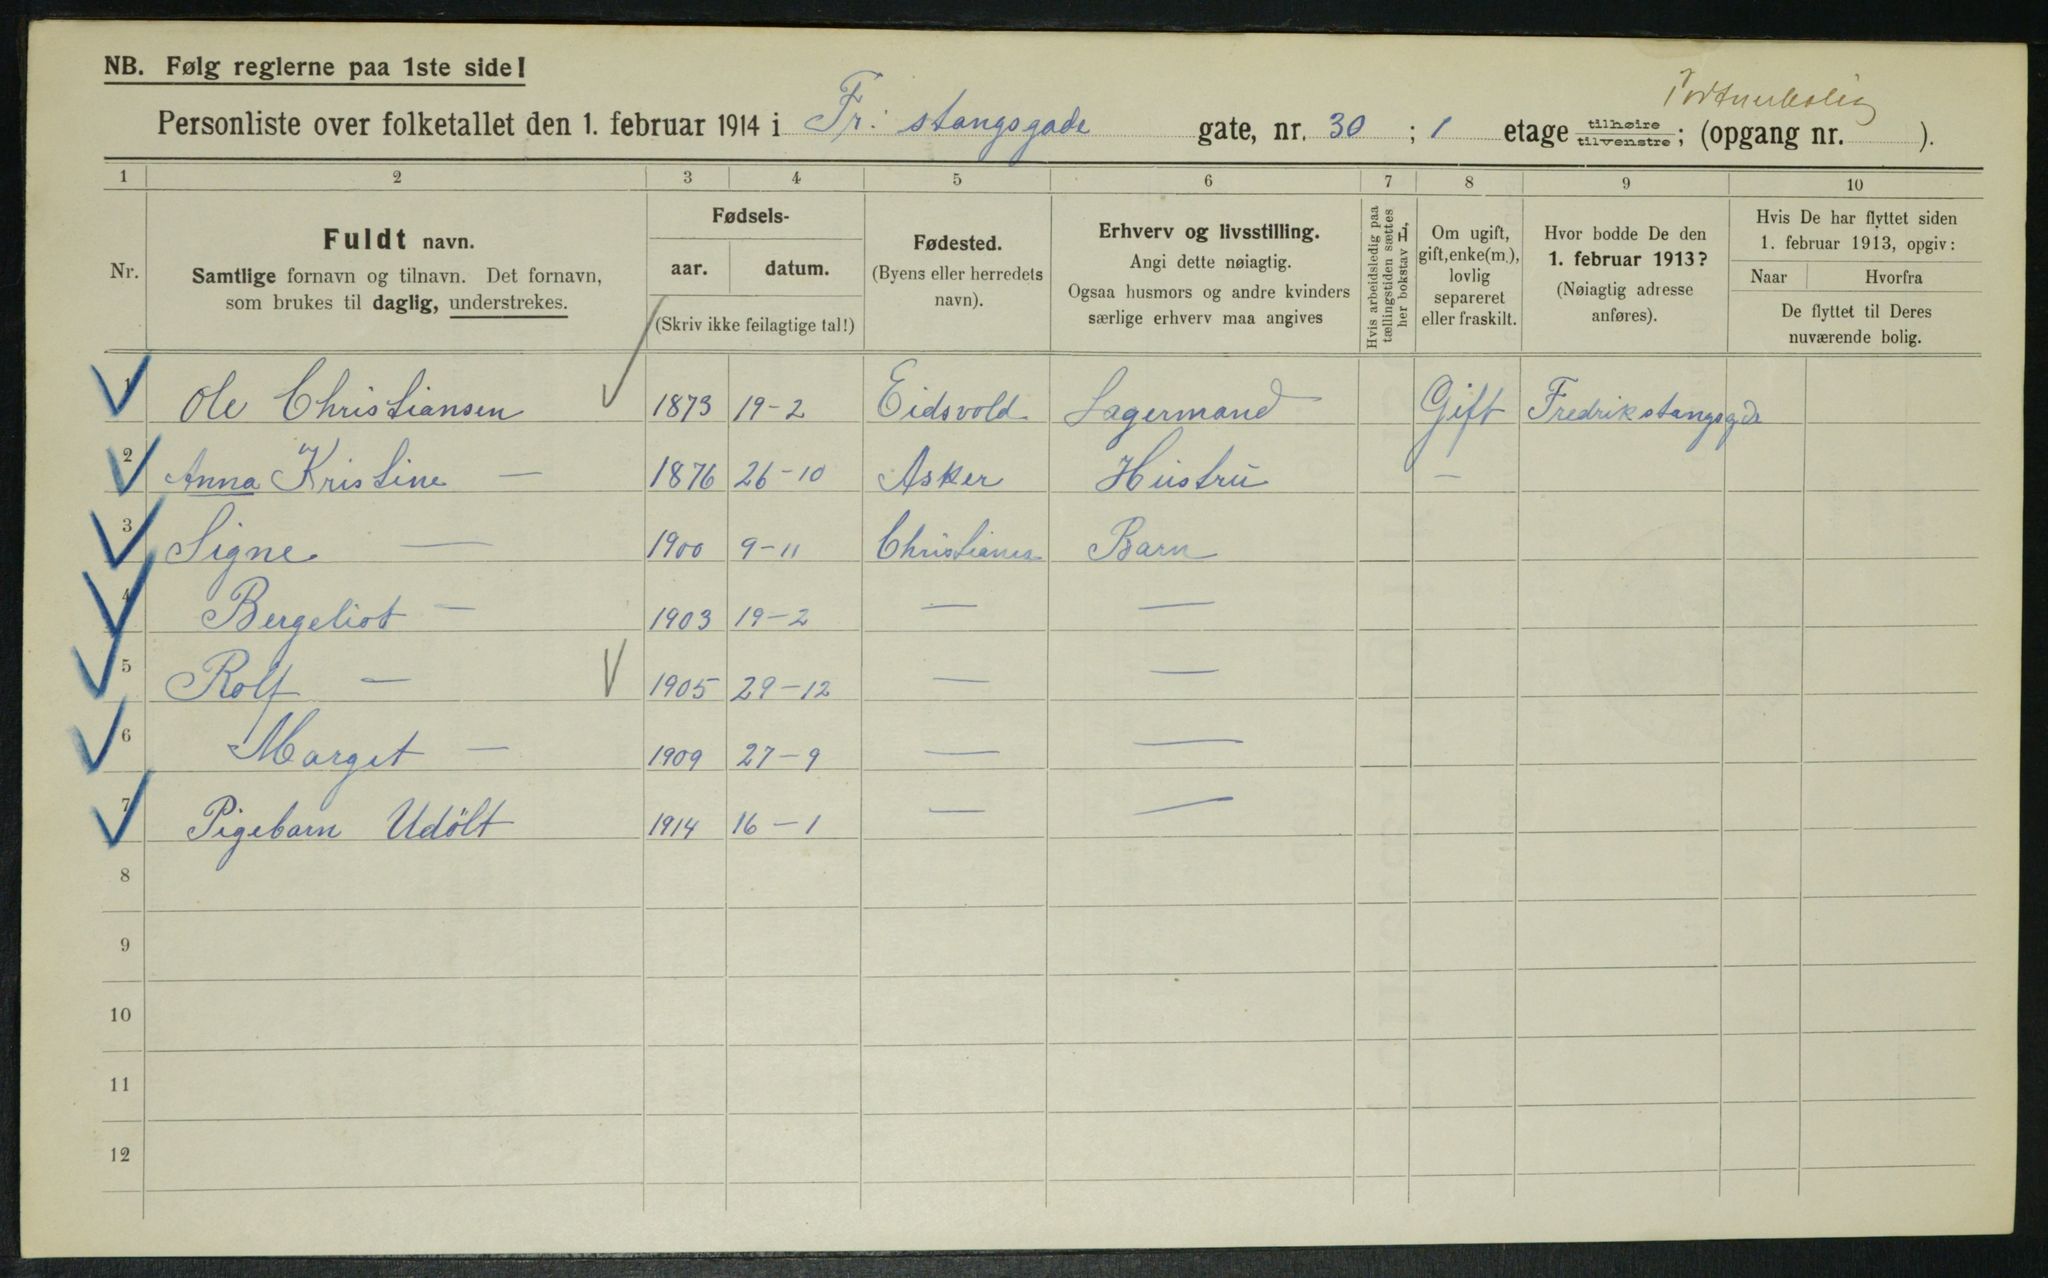 NB. Følg reglerne paa 1ste side!
Portnerbolig
Personliste over folketallet den 1. februar 1914 i Fr. stangsgade gate, nr. 30 ; 1 etage tilhøire tilvenstre ; (opgang nr. ).
1 2 3 4 5 6 7 8 9 10
Nr.
Fuldt navn.
Samtlige fornavn og tilnavn. Det fornavn,
som brukes til daglig, understrekes.
Fødsels-
aar. datum.
(Skriv ikke feilagtige tal!)
Fødested.
(Byens eller herredets
navn).
Erhverv og livsstilling.
Angi dette nøiagtig.
Ogsaa husmors og andre kvinders
særlige erhverv maa angives
Hvis arbeidsledig paa
tællingstiden sættes
her bokstav L,
Om ugift,
gift, enke(m.),
lovlig
separeret
eller fraskilt.
Hvor bodde De den
1. februar 1913?
(Nøiagtig adresse
anføres).
Hvis De har flyttet siden
1. februar 1913, opgiv:
Naar Hvorfra
De flyttet til Deres
nuværende bolig.
1 Ole Christiansen 1873 19-2 Eidsvold Lagermand Gift Fredrikstangsgde
2 Anna Kristine — 1876 26-10 Asker Hustru —
3 Signe — 1900 9-11 Christiania Barn
4 Bergeliot — 1903 19-2 — —
5 Rolf — 1905 29-12 — —
6 Margit — 1909 27-9 — —
7 Pigebarn Udölt 1914 16-1 — —
8
9
10
11
12